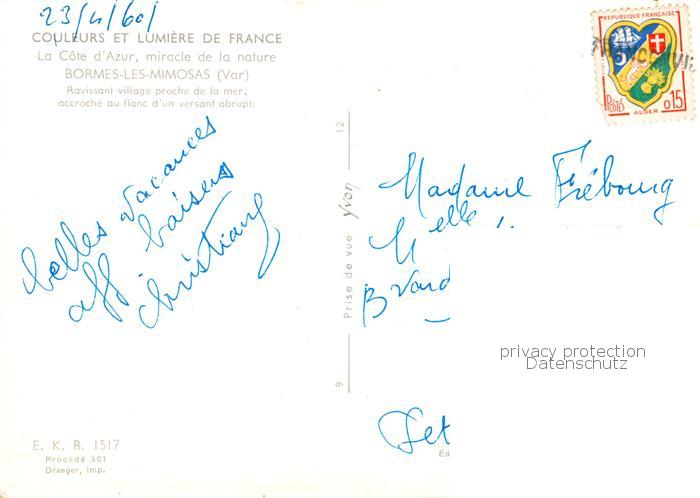 23/4/60
COULEURS ET LUMIÈRE DE FRANCE
La Côte d'Azur, miracle de la nature
BORMES-LES-MIMOSAS (Var)
Ravissant village proche de la mer,
accroché au flanc d'un versant abrupt.
belles vacances
aff baisers
Christiane
E. K. B. 1517
Procédé 301
Draeger, Imp.
12
Prise de vue Yvon
9
REPUBLIQUE FRANÇAISE
POSTES
0,15
ALGER
Madame Frébourg
Melle
privacy protection
Datenschutz
Ed